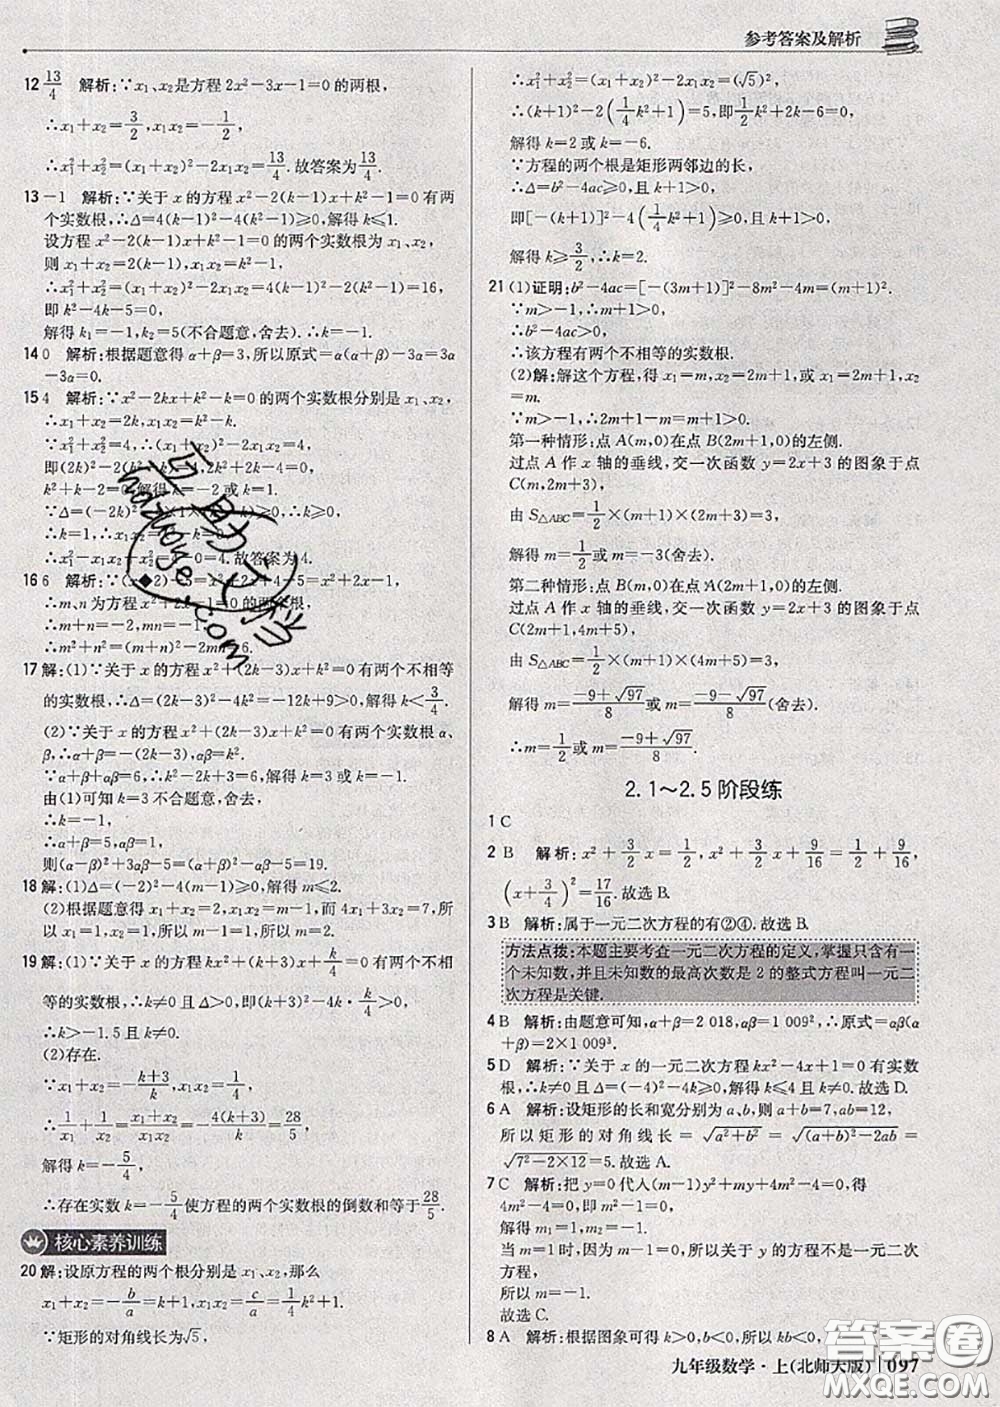 参考答案及解析
12 13/4 解析:∵x₁、x₂是方程 2x²-3x-1=0 的两根,
∴x₁+x₂=3/2,x₁x₂=-1/2.
∴x₁²+x₂²=(x₁+x₂)²-2x₁x₂=13/4.故答案为13/4.
13 -1 解析:∵关于 x 的方程 x²-2(k-1)x+k²-1=0 有两
个实数根,∴Δ=4(k-1)²-4(k²-1)≥0,解得 k≤1.
设方程 x²-2(k-1)x+k²-1=0 的两个实数根为 x₁、x₂,
则 x₁+x₂=2(k-1),x₁x₂=k²-1,
∴x₁²+x₂²=(x₁+x₂)²-2x₁x₂=4(k-1)²-2(k²-1)=16,
即 k²-4k-5=0,
解得 k₁=-1,k₂=5(不合题意,舍去).∴k=-1.
14 0 解析:根据题意得 α+β=3,所以原式=α(α+β)-3α=3α
-3α=0.
15 4 解析:∵x²-2kx+k²-k=0 的两个实数根分别是 x₁、x₂,
∴x₁+x₂=2k,x₁x₂=k²-k.
∵x₁²+x₂²=4,∴(x₁+x₂)²-2x₁x₂=4,
即(2k)²-2(k²-k)=4,2k²+2k-4=0,
k²+k-2=0,解得 k=-2 或 k=1.
∵Δ=(-2k)²-4×1×(k²-k)≥0,
∴k≥0,∴k=1,∴x₁x₂=k²-k=0.
∴x₁²-x₁x₂+x₂²=4-0=4.故答案为 4.
16 6 解析:∵(x◆2)-5=x²+2x+4-5=x²+2x-1,
∴m、n 为方程 x²+2x-1=0 的两个根,
∴m+n=-2,mn=-1,
∴m²+n²=(m+n)²-2mn=6.
17 解:(1)∵关于 x 的方程 x²+(2k-3)x+k²=0 有两个不相等
的实数根,∴Δ=(2k-3)²-4k²=-12k+9>0,解得 k<3/4.
(2)∵关于 x 的方程 x²+(2k-3)x+k²=0 有两个实数根 α、
β,∴α+β=-(2k-3),αβ=k².
∵α+β+αβ=6,∴k²-2k+3=6,解得 k=3 或 k=-1.
由(1)可知 k=3 不合题意,舍去,
∴k=-1,∴α+β=5,αβ=1,
则(α-β)²+3αβ-5=(α+β)²-αβ-5=19.
18 解:(1)Δ=(-2)²-4(m-1)≥0,解得 m≤2.
(2)根据题意得 x₁+x₂=2,x₁x₂=m-1,而 4x₁+3x₂=7,所
以 x₁=1,x₂=1,所以 m-1=1×1,所以 m=2.
19 解:(1)∵关于 x 的方程 kx²+(k+3)x+k/4=0 有两个不相
等的实数根,∴k≠0 且 Δ=(k+3)²-4k·k/4>0,
∴k>-1.5 且 k≠0.
(2)存在.
∵x₁+x₂=-(k+3)/k,x₁x₂=1/4,
∴1/x₁+1/x₂=(x₁+x₂)/(x₁x₂)=-4(k+3)/k=28/5,
解得 k=-5/4,
∴存在实数 k=-5/4使方程的两个实数根的倒数和等于28/5.
核心素养训练
20 解:设原方程的两个根分别是 x₁、x₂,那么
x₁+x₂=-b/a=k+1,x₁x₂=c/a=1/4k²+1.
∵矩形的对角线长为√5,
∴x₁²+x₂²=(x₁+x₂)²-2x₁x₂=(√5)²,
∴(k+1)²-2(1/4k²+1)=5,即1/2k²+2k-6=0,
解得 k=2 或 k=-6.
∵方程的两个根是矩形两邻边的长,
∴Δ=b²-4ac≥0,且 k+1>0,
即[-(k+1)]²-4(1/4k²+1)≥0,且 k+1>0,
解得 k≥3/2,∴k=2.
21 (1)证明:b²-4ac=[-(3m+1)]²-8m²-4m=(m+1)².
∵m>-1,∴m+1>0,
∴b²-4ac>0.
∴该方程有两个不相等的实数根.
(2)解:解这个方程,得 x₁=m,x₂=2m+1,或 x₁=2m+1,x₂
=m.
∵m>-1,∴2m+1-m=m+1>0.
第一种情形:点 A(m,0)在点 B(2m+1,0)的左侧.
过点 A 作 x 轴的垂线,交一次函数 y=2x+3 的图象于点
C(m,2m+3),
由 S△ABC=1/2×(m+1)×(2m+3)=3,
解得 m=1/2或 m=-3(舍去).
第二种情形:点 B(m,0)在点 A(2m+1,0)的左侧.
过点 A 作 x 轴的垂线,交一次函数 y=2x+3 的图象于点
C(2m+1,4m+5),
由 S△ABC=1/2×(m+1)×(4m+5)=3,
解得 m=(-9+√97)/8或 m=(-9-√97)/8(舍去).
∴m=1/2或 m=(-9+√97)/8.
2.1～2.5 阶段练
1 C
2 B 解析:x²+3/2x=1/2,x²+3/2x+9/16=1/2+9/16,
(x+3/4)²=17/16.故选 B.
3 B 解析:属于一元二次方程的有②④.故选 B.
方法点拨:本题主要考查一元二次方程的定义,掌握只含有一
个未知数,并且未知数的最高次数是 2 的整式方程叫一元二
次方程是关键.
4 B 解析:由题意可知,α+β=2 018,αβ=1 009²,∴原式=αβ(α
+β)=2×1 009³.
5 D 解析:∵关于 x 的一元二次方程 kx²-4x+1=0 有实数
根,∴k≠0 且 Δ=(-4)²-4k≥0,解得 k≤4 且 k≠0.故选 D.
6 A 解析:设矩形的长和宽分别为 a、b,则 a+b=7,ab=12,
所以矩形的对角线长=√(a²+b²)=√((a+b)²-2ab)=
√(7²-2×12)=5.故选 A.
7 C 解析:把 y=0 代入(m-1)y²+my+4m²-4=0,得
4m²-4=0,
解得 m₁=1,m₂=-1.
当 m=1 时,因为 m-1=0,所以关于 y 的方程不是一元二次
方程,
所以 m=-1.
故选 C.
8 A 解析:根据图象可得 k>0,b<0,所以 kb<0.
九年级数学·上(北师大版) 097
互助文档
huzhoye.com
答案圈
MXQE.COM